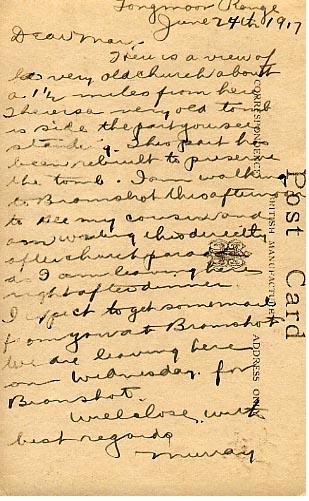 Longmoor Range
June 24th, 1917
Dear Mar.
Here is a view of
a very old church about
a 1½ miles from here
Theres a very old tomb
in side the part you see
standing. This part has
been rebuilt to preserve
the tomb. I am walking
to Bramshot this afternoon
to see my cousin and
am writing this directly
after church parade
as I am leaving here
right after dinner.
I expect to get some mail
from you at Bramshot
We are leaving here
on Wednesday for
Bramshot.
Well close with
best regards
Murray
Post Card
CORRESPONDENCE
BRITISH MANUFACTURE
ADDRESS ON